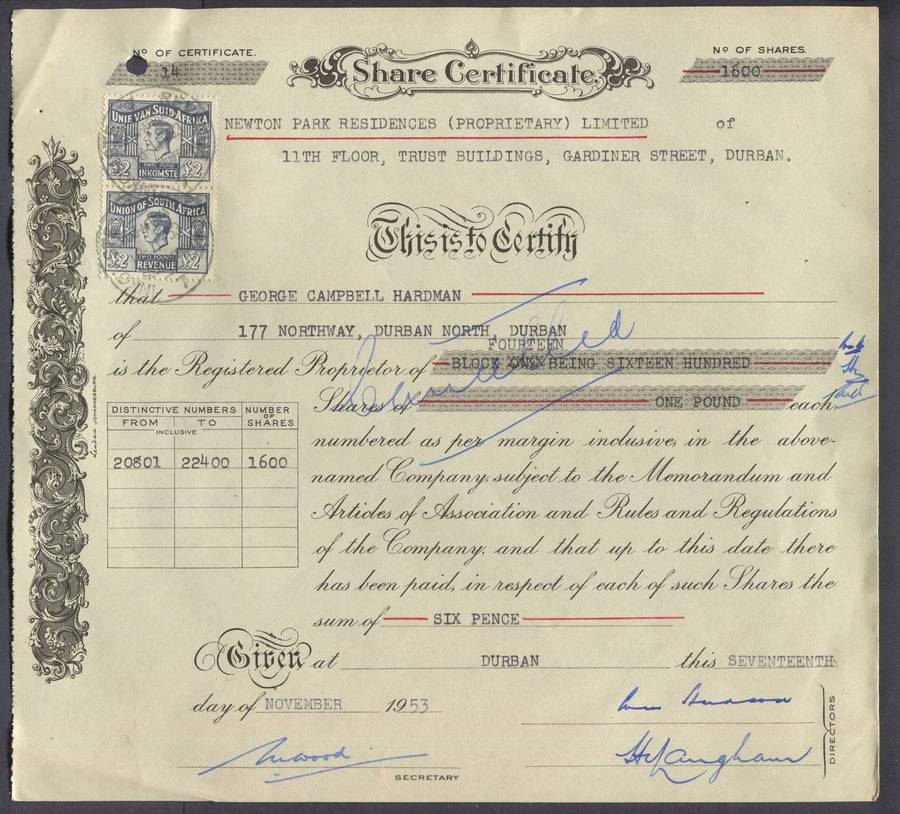 Nº OF CERTIFICATE.
14
Share Certificate.
Nº OF SHARES.
1600
UNIE VAN SUID-AFRIKA
TWEE POND
£2 INKOMSTE £2
UNION OF SOUTH AFRICA
TWO POUNDS
£2 REVENUE £2
NEWTON PARK RESIDENCES (PROPRIETARY) LIMITED of
11TH FLOOR, TRUST BUILDINGS, GARDINER STREET, DURBAN.
This is to Certify
that GEORGE CAMPBELL HARDMAN
of 177 NORTHWAY, DURBAN NORTH, DURBAN
FOURTEEN
is the Registered Proprietor of BLOCK BEING SIXTEEN HUNDRED
Shares of ONE POUND each,
Cancelled
numbered as per margin inclusive, in the above-
named Company, subject to the Memorandum and
Articles of Association and Rules and Regulations
of the Company, and that up to this date there
has been paid, in respect of each of such Shares the
sum of SIX PENCE
DISTINCTIVE NUMBERS NUMBER OF SHARES
FROM TO
INCLUSIVE
20801 22400 1600
JOHANNESBURG.
Given at DURBAN this SEVENTEENTH
day of NOVEMBER 1953
SECRETARY
DIRECTORS